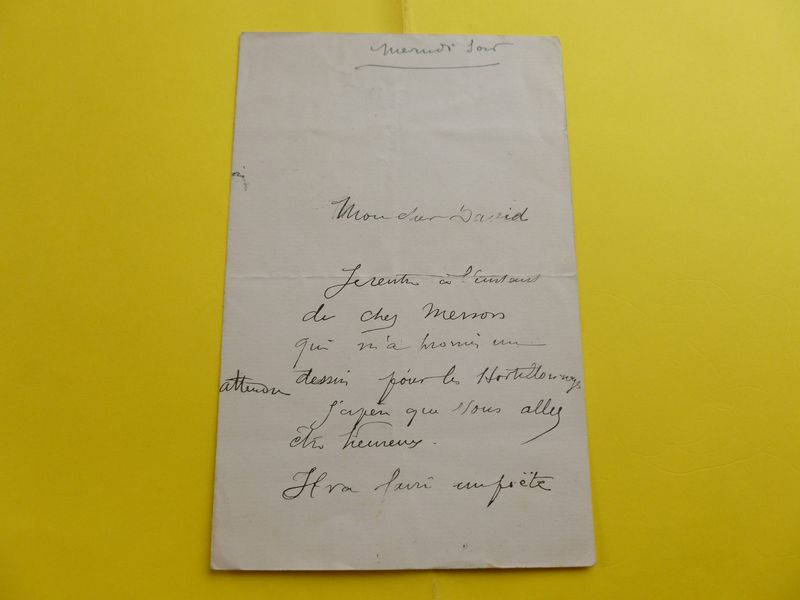 Mercredi Soir
Mon cher David
Je rentre à l'instant
de chez Merson
qui m'a promis un
attendu dessin pour les Hortillonnages
J'espère que vous allez
être heureux.
Il va faire un poëte